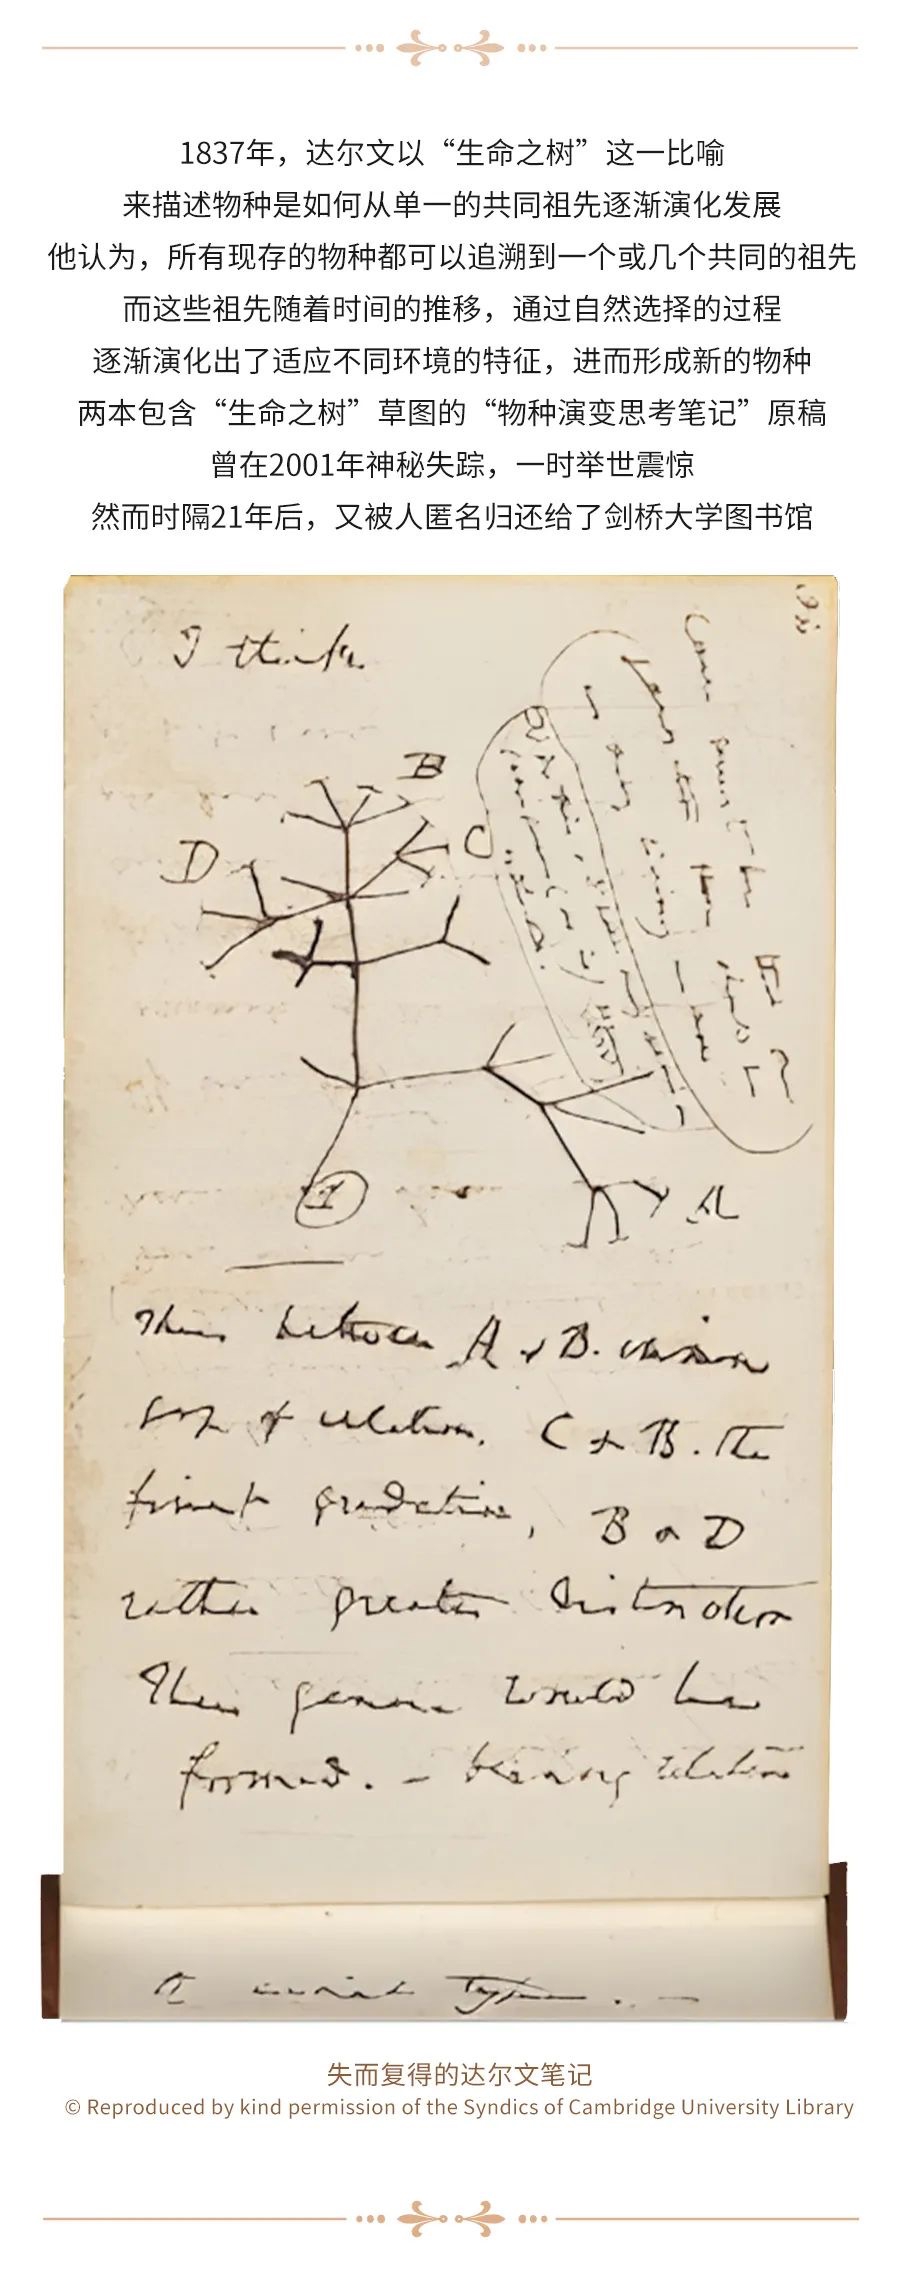 1837年，达尔文以“生命之树”这一比喻
来描述物种是如何从单一的共同祖先逐渐演化发展
他认为，所有现存的物种都可以追溯到一个或几个共同的祖先
而这些祖先随着时间的推移，通过自然选择的过程
逐渐演化出了适应不同环境的特征，进而形成新的物种
两本包含“生命之树”草图的“物种演变思考笔记”原稿
曾在2001年神秘失踪，一时举世震惊
然而时隔21年后，又被人匿名归还给了剑桥大学图书馆
I think
B
D
C
1
A
Thus between A & B. immense
gap of relation. C & B. the
finest gradation, B & D
rather greater distinction
Thus genera would be
formed. — bearing relation
to ancient types. —
失而复得的达尔文笔记
© Reproduced by kind permission of the Syndics of Cambridge University Library